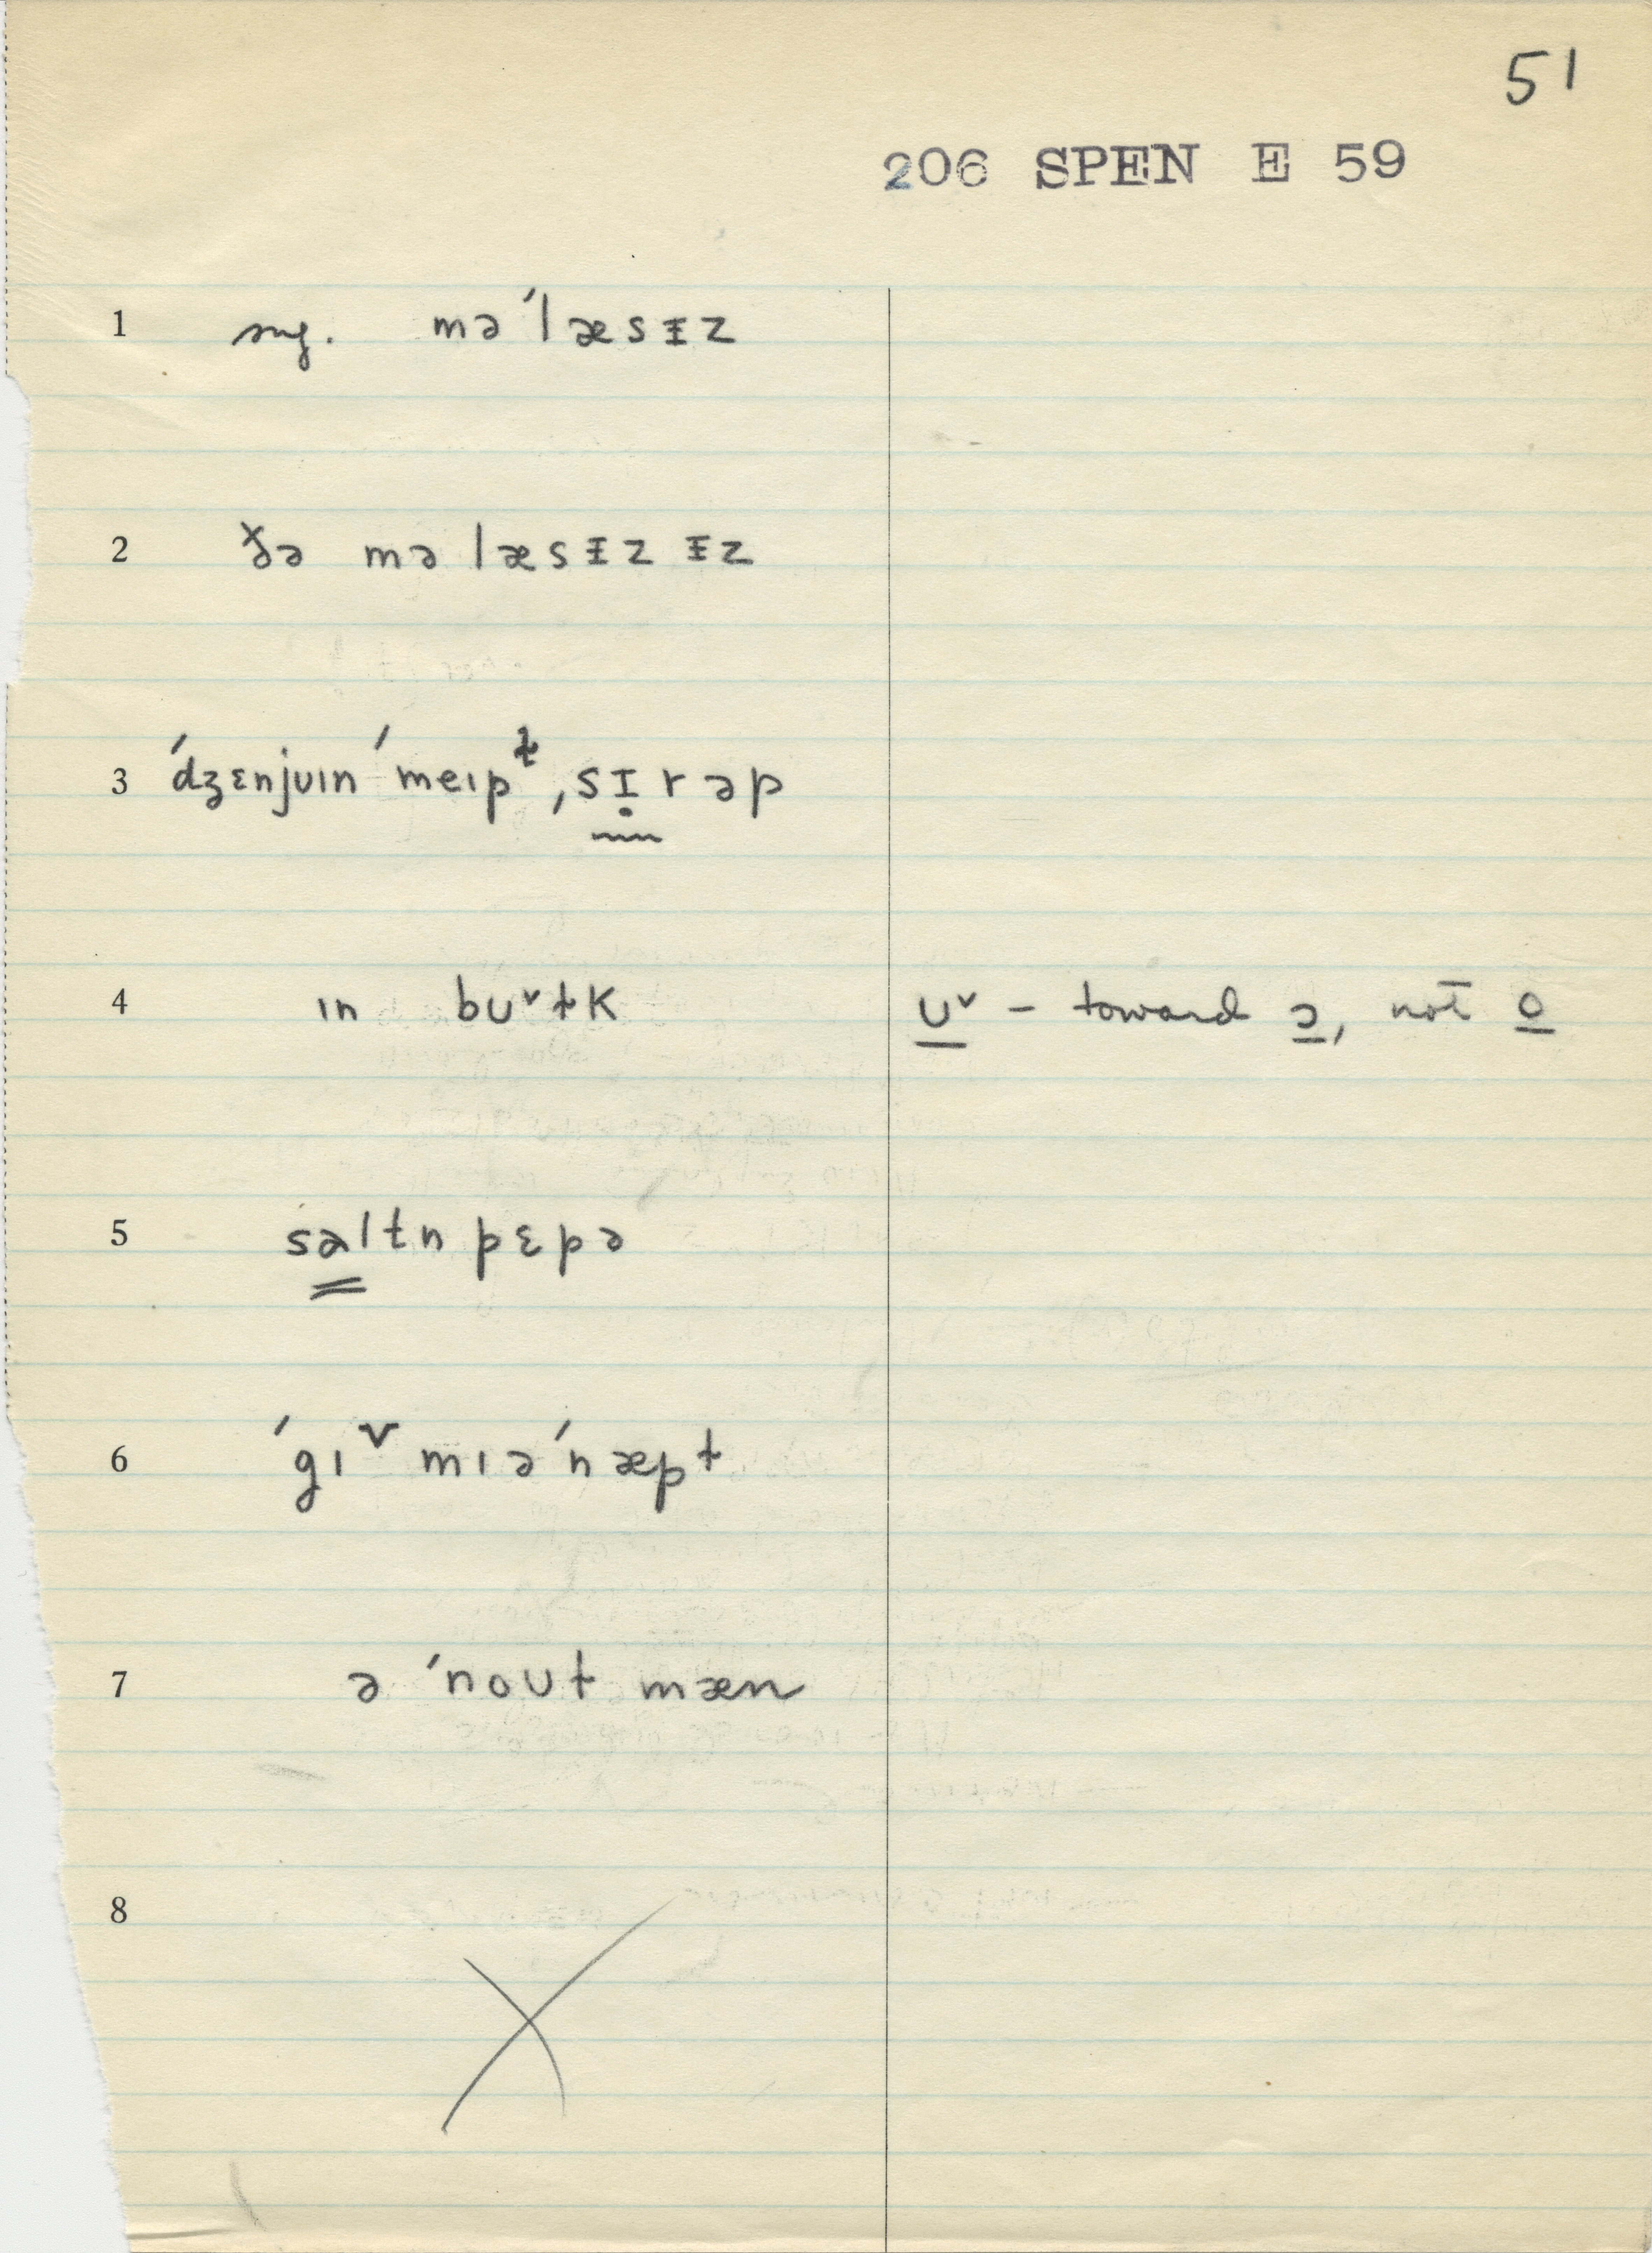 51
206 SPEN E 59
1 sug. mə ˈlæsɪ̵z
2 ðə mə læsɪ̵z ɪ̵z
3 ˈdʒɛnjuɪn ˈmeɪpᵗ̬, sɪ̣rəp
4 ɪn bʊᵛt̬k ʊᵛ – toward ɔ, not o
5 saltn pɛpə
6 ˈgɪᵛ mɪəˈnæpt
7 ə ˈnoʊt mæn
8